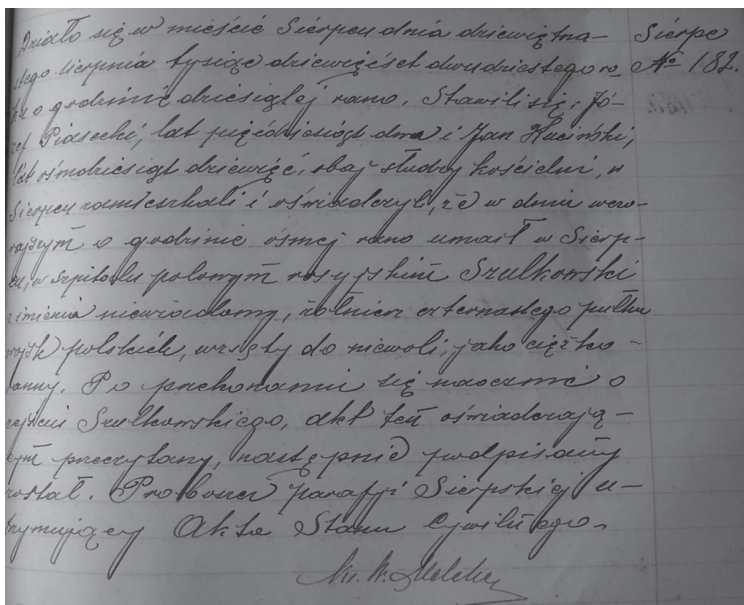 Działo się w mieście Sierpcu dnia dziewiętna-
stego sierpnia tysiąc dziewięćset dwudziestego ro
ku o godzinie dziesiątej rano. Stawili się: Jó-
zef Piasecki, lat pięćdziesiąt dwa i Jan Kuciński,
lat ośmdziesiąt dziewięć, obaj słudzy kościelni, w
Sierpcu zamieszkali i oświadczyli, że w dniu wczo-
rajszym o godzinie ósmej rano umarł w Sierp-
cu, w szpitalu polowym rosyjskim Szulkowski
z imienia niewiadomy, żołnierz czternastego pułku
wojsk polskich, wzięty do niewoli, jako ciężko-
ranny. Po przekonaniu się naocznie o
zejściu Szulkowskiego, akt ten oświadczają-
cym przeczytany, następnie podpisany
został. Proboszcz parafji Sierpskiej u-
trzymujący Akta Stanu Cywilnego.
Sierpc
№ 182.